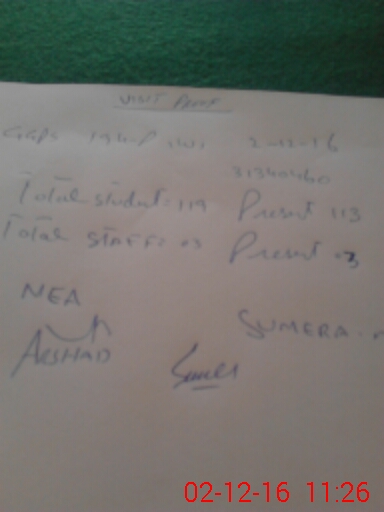 VISIT PROOF
GGPS 194-P 2-12-16
31340460
Total student: 119 Present 113
Total STAFF: 03 Present 03
NEA
ARSHAD
SUMERA
02-12-16 11:26